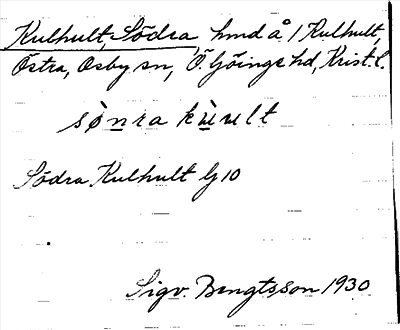 Kulhult, Södra hmd å 1 Kulhult,
Östra, Osby sn, Ö. Göinge hd, Krist. l.
sònra kùrult
Södra Kulhult G 10
Sigv. Bengtsson 1930